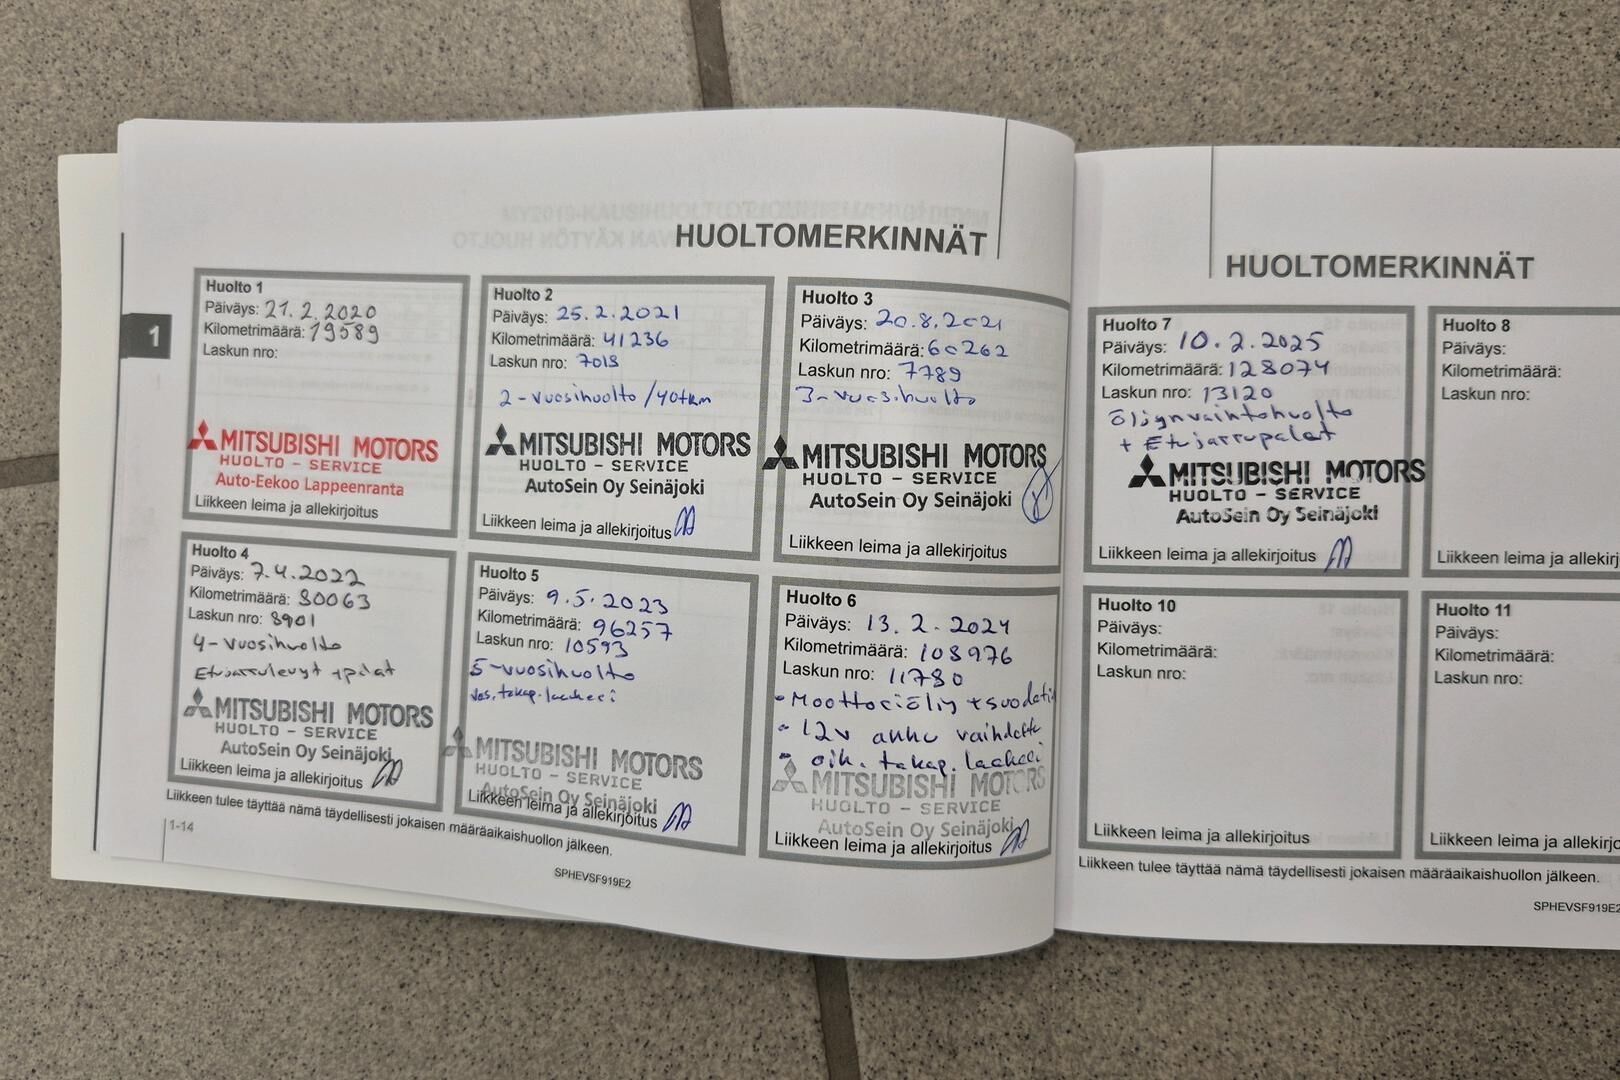 HUOLTOMERKINNÄT
1
Huolto 1
Päiväys: 21.2.2020
Kilometrimäärä: 19589
Laskun nro:
MITSUBISHI MOTORS
HUOLTO - SERVICE
Auto-Eekoo Lappeenranta
Liikkeen leima ja allekirjoitus
Huolto 2
Päiväys: 25.2.2021
Kilometrimäärä: 41236
Laskun nro: 7018
2-vuosihuolto/40tkm
MITSUBISHI MOTORS
HUOLTO - SERVICE
AutoSein Oy Seinäjoki
Liikkeen leima ja allekirjoitus
Huolto 3
Päiväys: 20.8.2021
Kilometrimäärä: 60262
Laskun nro: 7789
3-vuosihuolto
MITSUBISHI MOTORS
HUOLTO - SERVICE
AutoSein Oy Seinäjoki
Liikkeen leima ja allekirjoitus
Huolto 4
Päiväys: 7.4.2022
Kilometrimäärä: 80063
Laskun nro: 8901
4-vuosihuolto
Etujarrulevyt +palat
MITSUBISHI MOTORS
HUOLTO - SERVICE
AutoSein Oy Seinäjoki
Liikkeen leima ja allekirjoitus
Huolto 5
Päiväys: 9.5.2023
Kilometrimäärä: 96257
Laskun nro: 10593
5-vuosihuolto
vas. takap. laakeri
MITSUBISHI MOTORS
HUOLTO - SERVICE
AutoSein Oy Seinäjoki
Liikkeen leima ja allekirjoitus
Huolto 6
Päiväys: 13.2.2024
Kilometrimäärä: 108976
Laskun nro: 11780
- Moottoriöljy +suodatin
- 12v akku vaihdettu
- oik. takap. laakeri
MITSUBISHI MOTORS
HUOLTO - SERVICE
AutoSein Oy Seinäjoki
Liikkeen leima ja allekirjoitus
Liikkeen tulee täyttää nämä täydellisesti jokaisen määräaikaishuollon jälkeen.
1-14
SPHEVSF919E2
HUOLTOMERKINNÄT
Huolto 7
Päiväys: 10.2.2025
Kilometrimäärä: 128074
Laskun nro: 13120
öljynvaihtohuolto
+ Etujarrupalat
MITSUBISHI MOTORS
HUOLTO - SERVICE
AutoSein Oy Seinäjoki
Liikkeen leima ja allekirjoitus
Huolto 8
Päiväys:
Kilometrimäärä:
Laskun nro:
Liikkeen leima ja allekirj
Huolto 10
Päiväys:
Kilometrimäärä:
Laskun nro:
Liikkeen leima ja allekirjoitus
Huolto 11
Päiväys:
Kilometrimäärä:
Laskun nro:
Liikkeen leima ja allekirjo
Liikkeen tulee täyttää nämä täydellisesti jokaisen määräaikaishuollon jälkeen.
SPHEVSF919E2